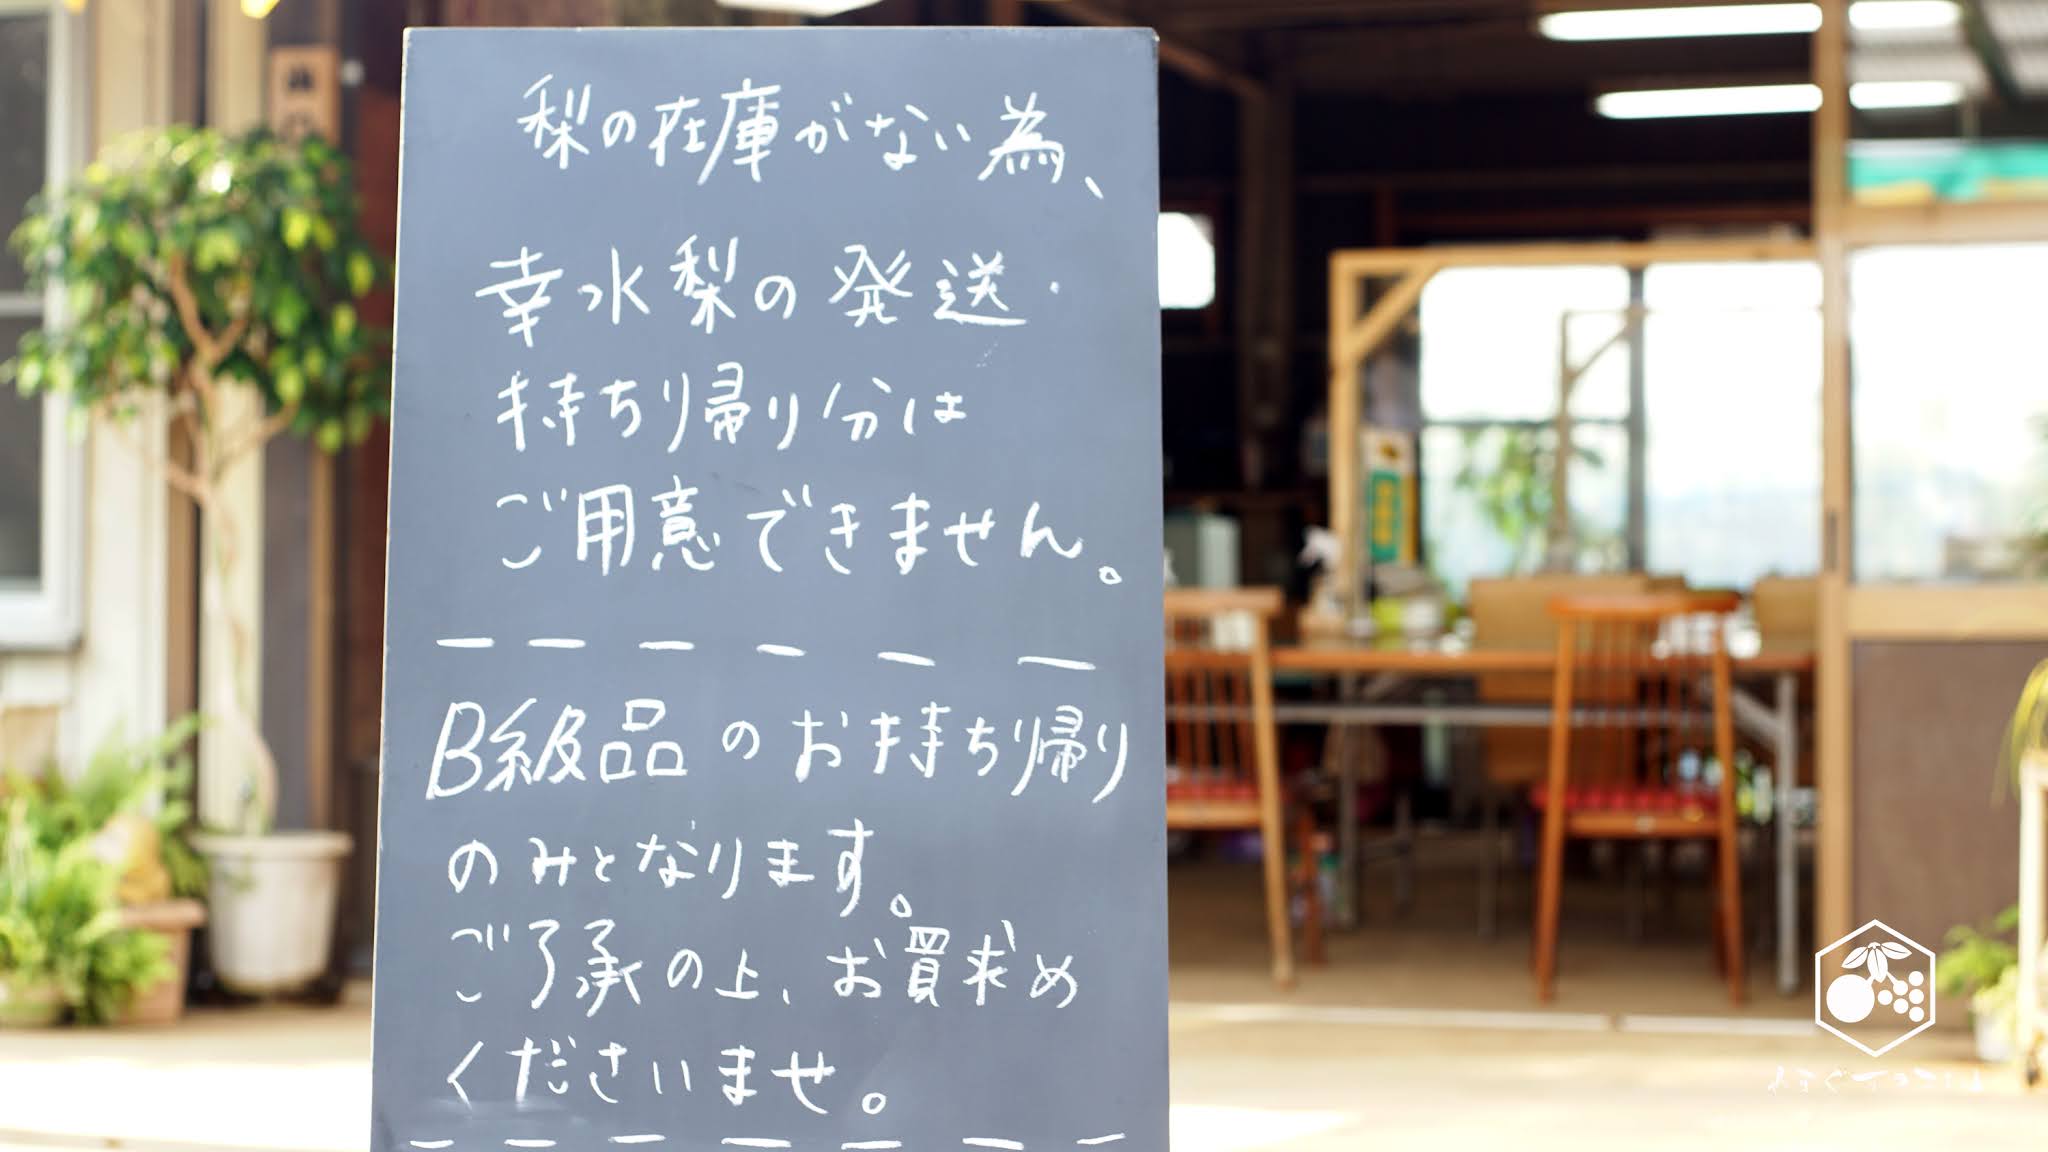 梨の在庫がない為、
幸水梨の発送・
持ち帰り分は
ご用意できません。
B級品のお持ち帰り
のみとなります。
ご了承の上、お買求め
くださいませ。